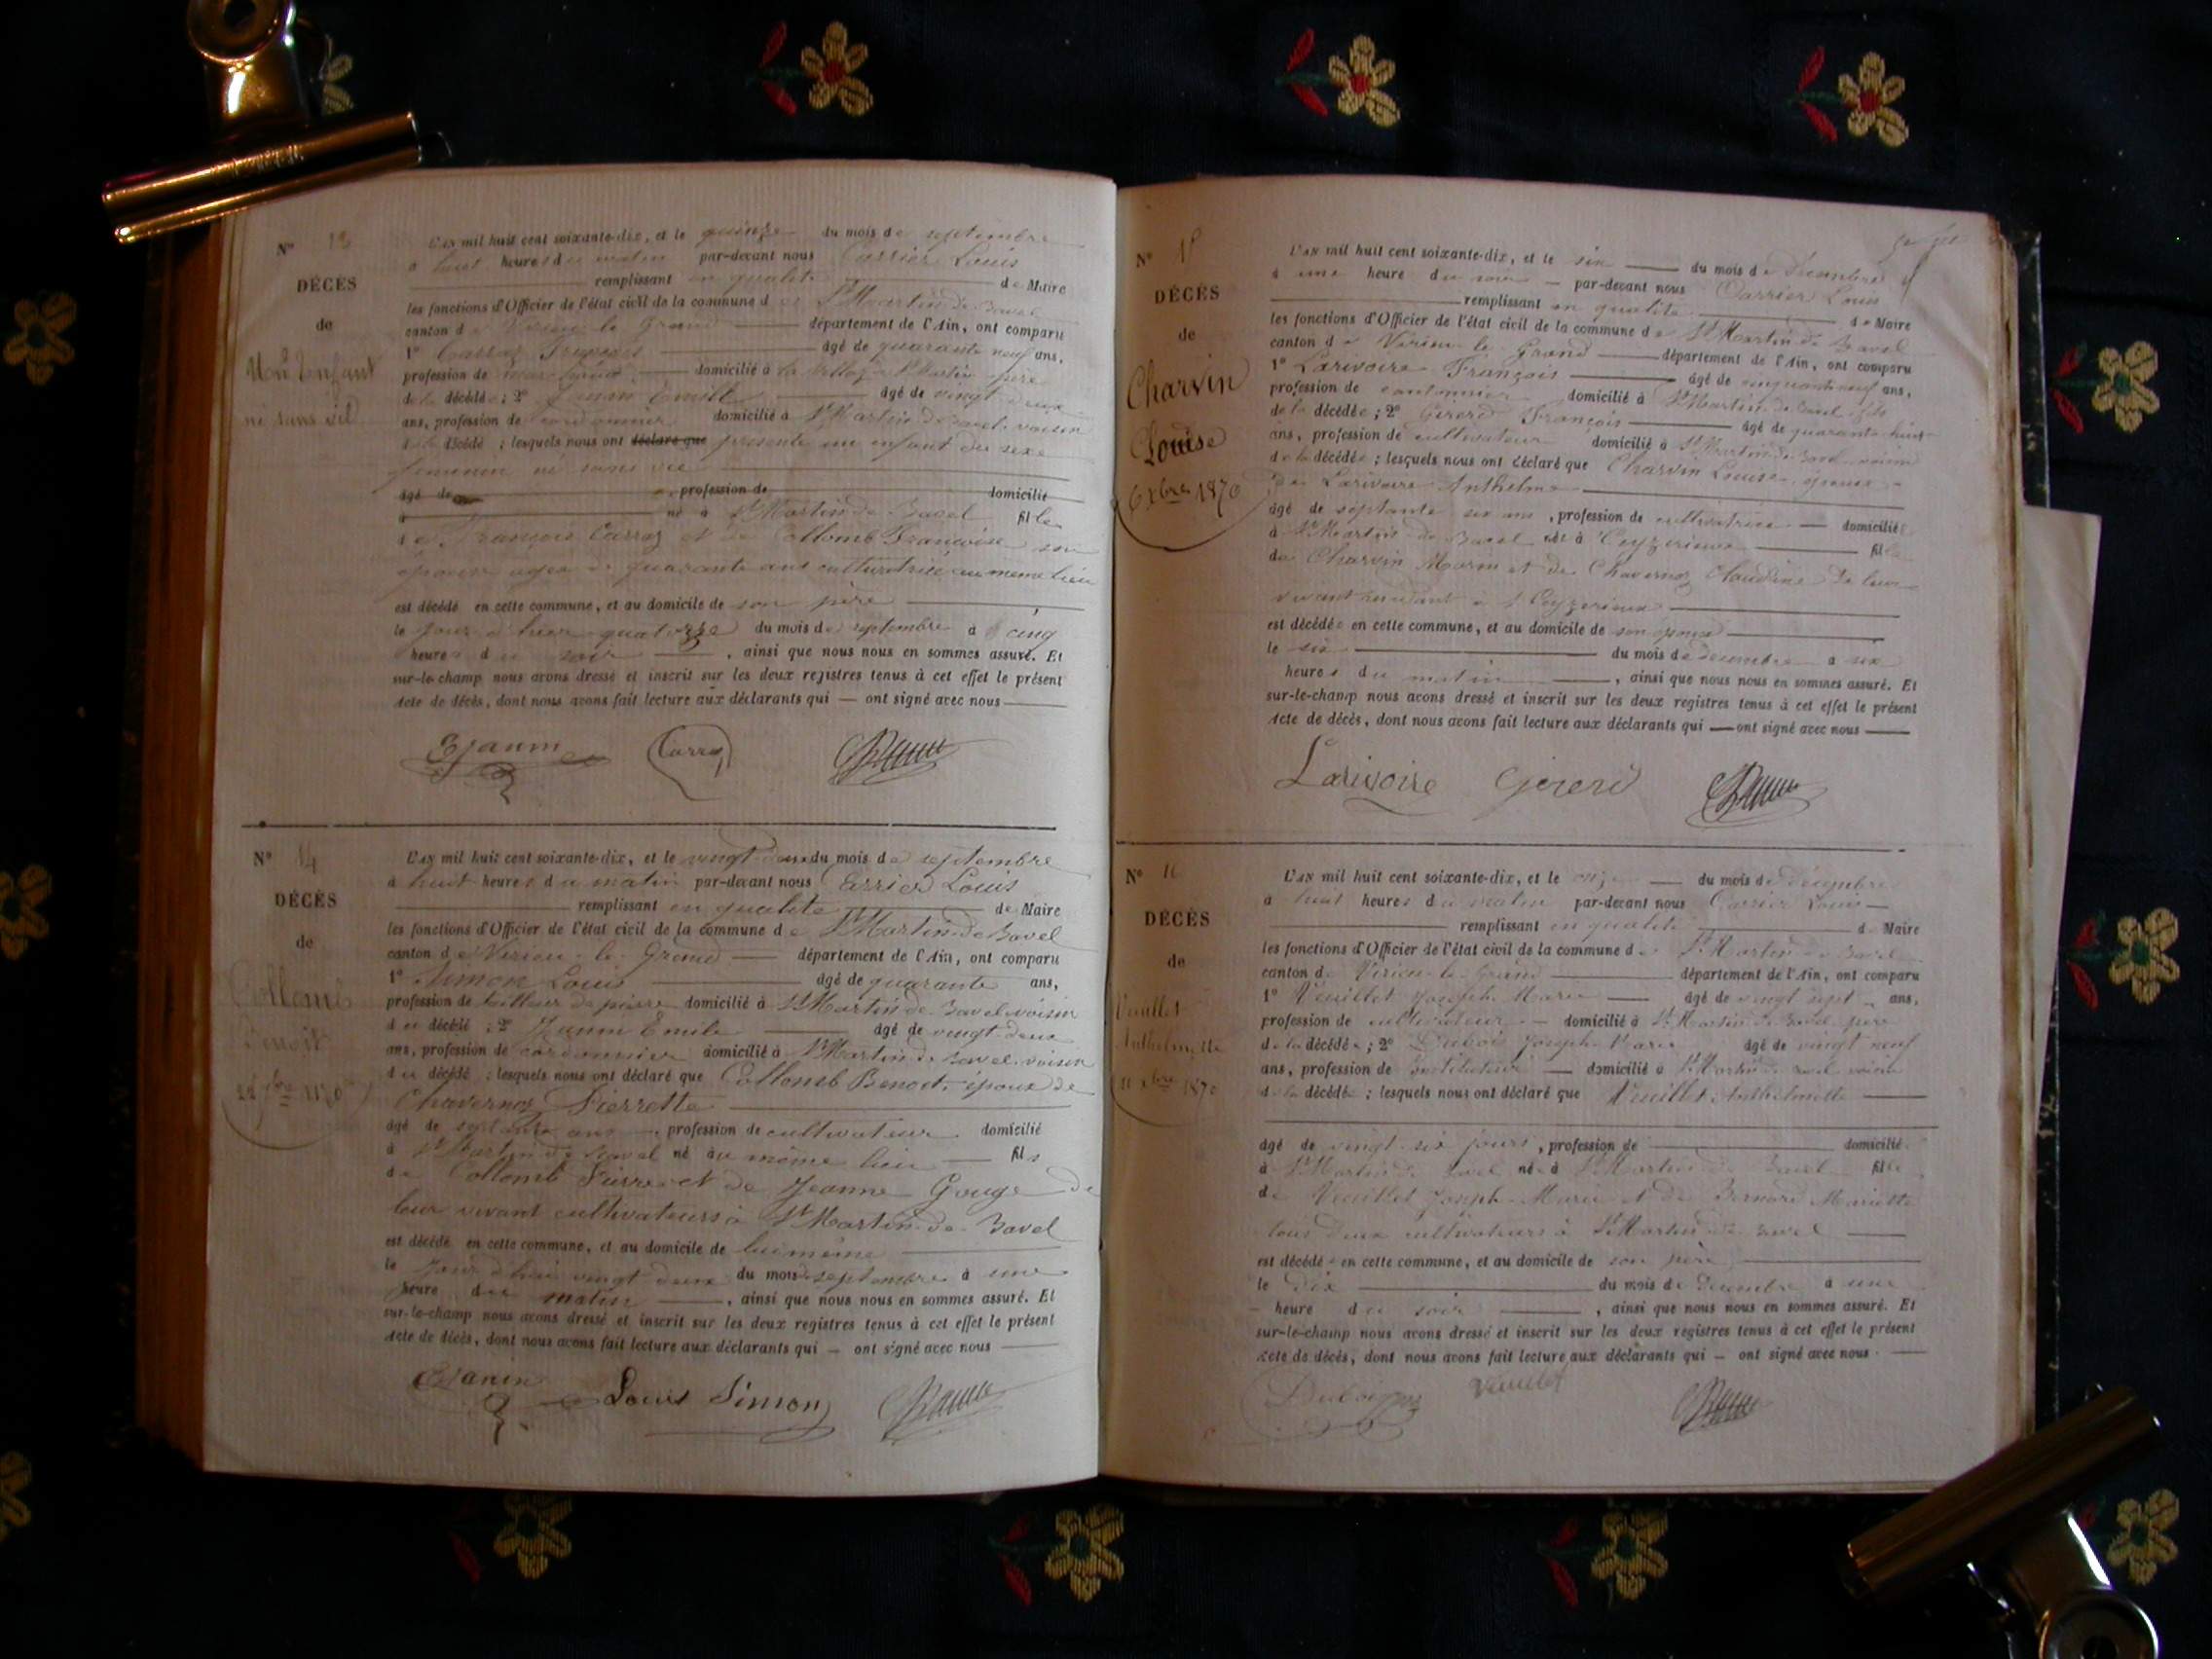 N° 13
DÉCÈS
de
Un Enfant
né sans vie
L'AN mil huit cent soixante-dix, et le quinze du mois de septembre
à huit heures du matin par-devant nous Carrier Louis
remplissant en qualité de Maire
les fonctions d'Officier de l'état civil de la commune de St Martin de Bavel
canton de Virieu-le-Grand département de l'Ain, ont comparu
1° Carraz François âgé de quarante neuf ans,
profession de domicilié à St Martin père
de la décédée; 2° Janin Emile âgé de vingt deux
ans, profession de cordonnier domicilié à St Martin de Bavel voisin
de la décédé ; lesquels nous ont déclaré que présenté un enfant du sexe
féminin né sans vie
âgé de profession de domicilié
à né à St Martin de Bavel fille
de François Carraz et de Collomb Françoise son
épouse agée de quarante ans cultivatrice au même lieu
est décédé en cette commune, et au domicile de son père
le jour d'hier quatorze du mois de septembre à cinq
heures du soir , ainsi que nous nous en sommes assuré. Et
sur-le-champ nous avons dressé et inscrit sur les deux registres tenus à cet effet le présent
Acte de décès, dont nous avons fait lecture aux déclarants qui — ont signé avec nous
EJanin Carraz
N° 14
DÉCÈS
de
Collomb
Benoit
22 7bre 1870
L'AN mil huit cent soixante-dix, et le vingt deux du mois de septembre
à huit heures du matin par-devant nous Carrier Louis
remplissant en qualité de Maire
les fonctions d'Officier de l'état civil de la commune de St Martin de Bavel
canton de Virieu-le-Grand département de l'Ain, ont comparu
1° Simon Louis âgé de quarante ans,
profession de tailleur de pierre domicilié à St Martin de Bavel voisin
du décédé ; 2° Janin Emile âgé de vingt deux
ans, profession de cordonnier domicilié à St Martin de Bavel voisin
du décédé ; lesquels nous ont déclaré que Collomb Benoit, époux de
Chavernoz Pierrette
âgé de septante ans profession de cultivateur domicilié
à St Martin de Bavel né au même lieu fils
de Collomb Pierre et de Jeanne Gouge de
leur vivant cultivateurs à St Martin-de-Bavel
est décédé en cette commune, et au domicile de lui même
le jour d'hui vingt deux du mois septembre à une
heure du matin , ainsi que nous nous en sommes assuré. Et
sur-le-champ nous avons dressé et inscrit sur les deux registres tenus à cet effet le présent
Acte de décès, dont nous avons fait lecture aux déclarants qui — ont signé avec nous
EJanin Louis Simon
N° 15
DÉCÈS
de
Charvin
Louise
6 xbre 1870
L'AN mil huit cent soixante-dix, et le six du mois de décembre
à une heure du soir par-devant nous Carrier Louis
remplissant en qualité de Maire
les fonctions d'Officier de l'état civil de la commune de St Martin de Bavel
canton de Virieu-le-Grand département de l'Ain, ont comparu
1° Larivoire François âgé de cinquante neuf ans,
profession de cantonnier domicilié à St Martin de Bavel fils
de la décédée ; 2° Gererd François âgé de quarante huit
ans, profession de cultivateur domicilié à St Martin de Bavel voisin
de la décédée ; lesquels nous ont déclaré que Charvin Louise, épouse
de Larivoire Anthelme
âgé de septante six ans , profession de cultivatrice domiciliée
à St Martin de Bavel née à Ceyzerieux fille
de Charvin Marin et de Chavernoz Claudine de leur
vivant résidant à Ceyzerieux
est décédée en cette commune, et au domicile de son époux
le six du mois de décembre à six
heures du matin , ainsi que nous nous en sommes assuré. Et
sur-le-champ nous avons dressé et inscrit sur les deux registres tenus à cet effet le présent
Acte de décès, dont nous avons fait lecture aux déclarants qui — ont signé avec nous
Larivoire Gererd
N° 16
DÉCÈS
de
Veuillet
Anthelmette
11 xbre 1870
L'AN mil huit cent soixante-dix, et le onze du mois de décembre
à huit heures du matin par-devant nous Carrier Louis
remplissant en qualité de Maire
les fonctions d'Officier de l'état civil de la commune de St Martin de Bavel
canton de Virieu-le-Grand département de l'Ain, ont comparu
1° Veuillet Joseph Marie âgé de vingt sept ans,
profession de cultivateur domicilié à St Martin de Bavel père
de la décédée ; 2° Dubois Joseph Marie âgé de vingt neuf
ans, profession de Instituteur domicilié à St Martin de Bavel voisin
de la décédée ; lesquels nous ont déclaré que Veuillet Anthelmette
âgé de vingt six jours , profession de domicilié
à St Martin de Bavel née à St Martin de Bavel fille
de Veuillet Joseph Marie et de Bernard Mariette
tous deux cultivateurs à St Martin de Bavel
est décédée en cette commune, et au domicile de son père
le dix du mois de décembre à une
heure du soir , ainsi que nous nous en sommes assuré. Et
sur-le-champ nous avons dressé et inscrit sur les deux registres tenus à cet effet le présent
Acte de décès, dont nous avons fait lecture aux déclarants qui — ont signé avec nous
Dubois Veuillet